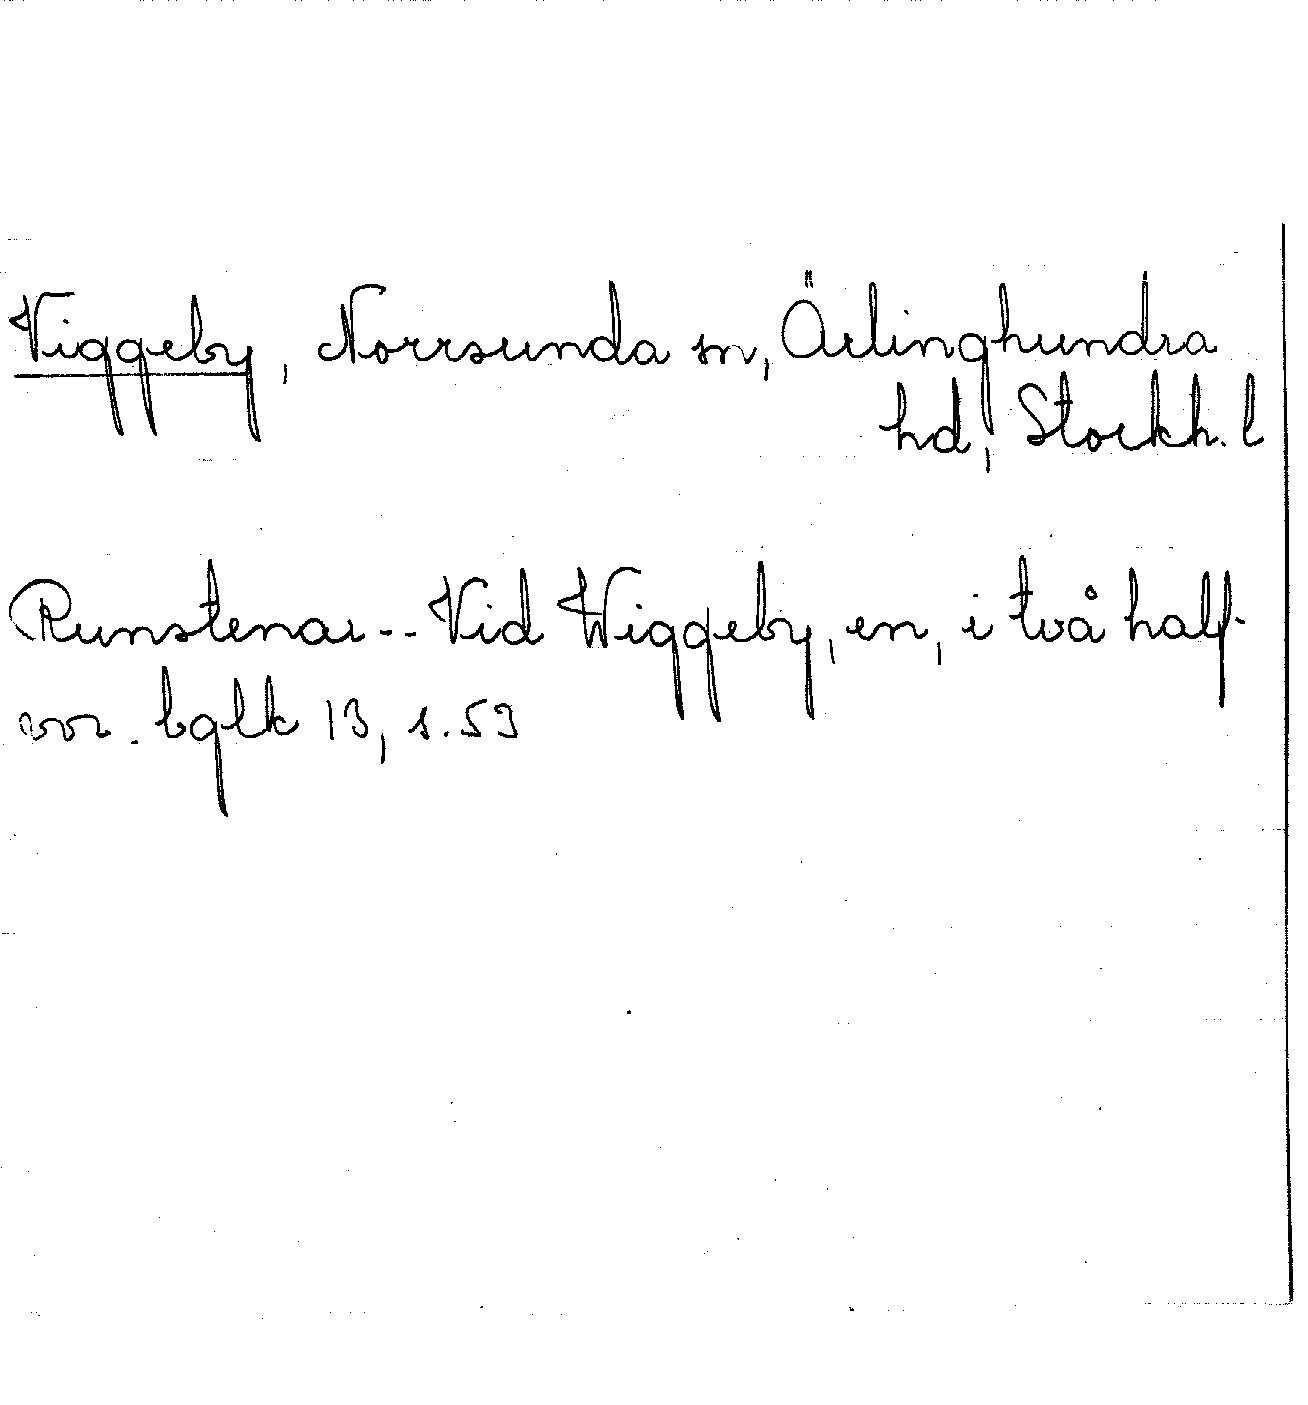 Viggeby, Norrsunda sn, Ärlinghundra
hd, Stockh. l
Runstenar-- Vid Wiggeby, en, i två half-
vor. bglk 13, s. 53